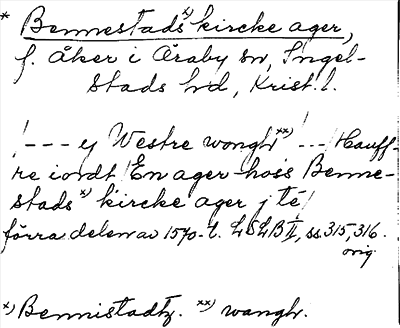 * Bennestads x) kircke ager,
f. åker i Åraby sn, Ingel-
stads hd, Krist. l.
/--- y Westre wongh xx) --- / Hauff-
re iordt / En ager hoss Benne-
stads x) kircke ager j té /
förra delen av 1570-t. LSLB II, ss 315, 316.
orig.
x) Bennistadtz. xx) wangh.